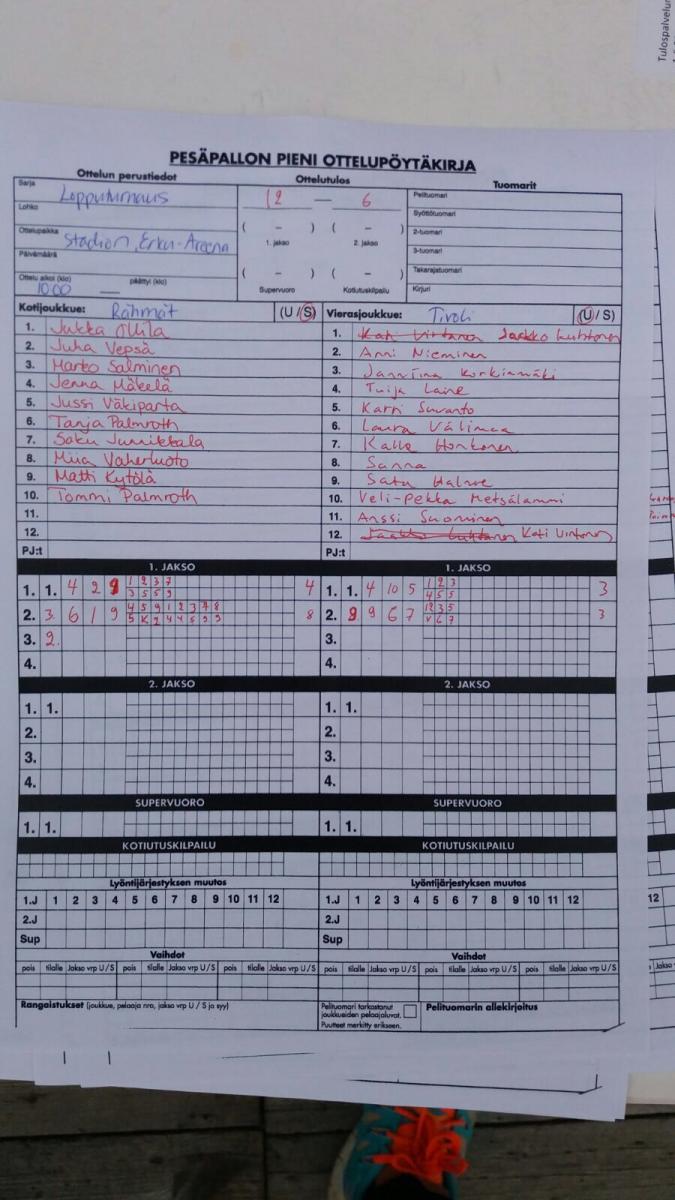 Tulospalvelun
PESÄPALLON PIENI OTTELUPÖYTÄKIRJA
Ottelun perustiedot Ottelutulos Tuomarit
Sarja Lopputurnaus 12 — 6 Pelituomari
Lohko Syöttötuomari
Ottelupaikka Stadion, Erku-Areena ( – ) ( – ) 2-tuomari
1. jakso 2. jakso 3-tuomari
Päivämäärä ( – ) ( – ) Takarajatuomari
Ottelu alkoi (klo) 10:00 päättyi (klo) Supervuoro Kotiutuskilpailu Kirjuri
Kotijoukkue: Rähmät (U/S) Vierasjoukkue: Tivoli (U/S)
1. Jukka Ollila 1. Kati Virtanen Jaakko Luhtanen
2. Juha Vepsä 2. Anni Nieminen
3. Marko Salminen 3. Janniina Korkiamäki
4. Jenna Mäkelä 4. Tuija Laine
5. Jussi Väkiparta 5. Katri Suvanto
6. Tanja Palmroth 6. Laura Välimaa
7. Saku Junnikkala 7. Kalle Honkonen
8. Miia Vaherluoto 8. Sanna
9. Matti Kytölä 9. Satu
10. Tommi Palmroth 10. Veli-Pekka Metsälammi
11. 11. Anssi Suominen
12. 12. Jaakko Luhtanen Kati Virtanen
PJ:t PJ:t
1. JAKSO 1. JAKSO
1. 1. 4 2 9 1 2 3 7 4 1. 1. 4 10 5 1 2 3 3
3 5 5 9 4 5 5
2. 3. 6 1 9 4 5 9 1 2 3 7 8 8 2. 9 9 6 7 12 3 5 3
5 K 2 4 4 5 9 9 V 6 7
3. 2. 3.
4. 4.
2. JAKSO 2. JAKSO
1. 1. 1. 1.
2. 2.
3. 3.
4. 4.
SUPERVUORO SUPERVUORO
1. 1. 1. 1.
KOTIUTUSKILPAILU KOTIUTUSKILPAILU
Lyöntijärjestyksen muutos Lyöntijärjestyksen muutos
1.J 1 2 3 4 5 6 7 8 9 10 11 12 1.J 1 2 3 4 5 6 7 8 9 10 11 12 12
2.J 2.J
Sup Sup
Vaihdot Vaihdot
pois tilalle Jakso vrp U/S pois tilalle Jakso vrp U/S pois tilalle Jakso vrp U/S pois tilalle Jakso vrp U/S pois tilalle Jakso vrp U/S pois tilalle Jakso vrp U/S
Rangaistukset (joukkue, pelaaja nro, jakso vrp U / S ja syy) Pelituomari tarkastanut Pelituomarin allekirjoitus
joukkueiden pelaajaluvat.
Puutteet merkitty erikseen.